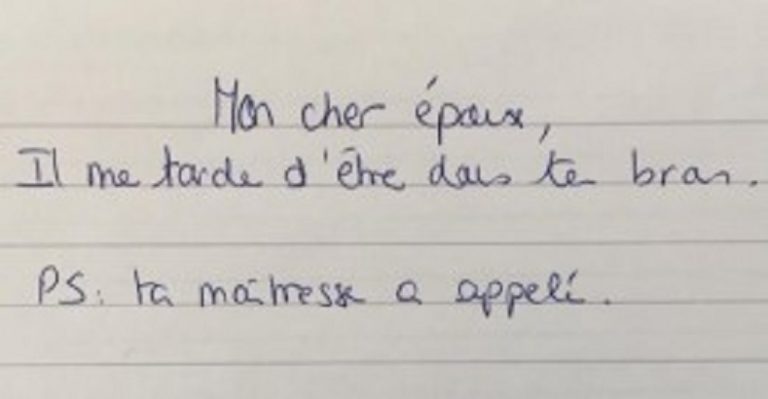 Mon cher époux,
Il me tarde d'être dans tes bras.
PS: ta maîtresse a appelé.